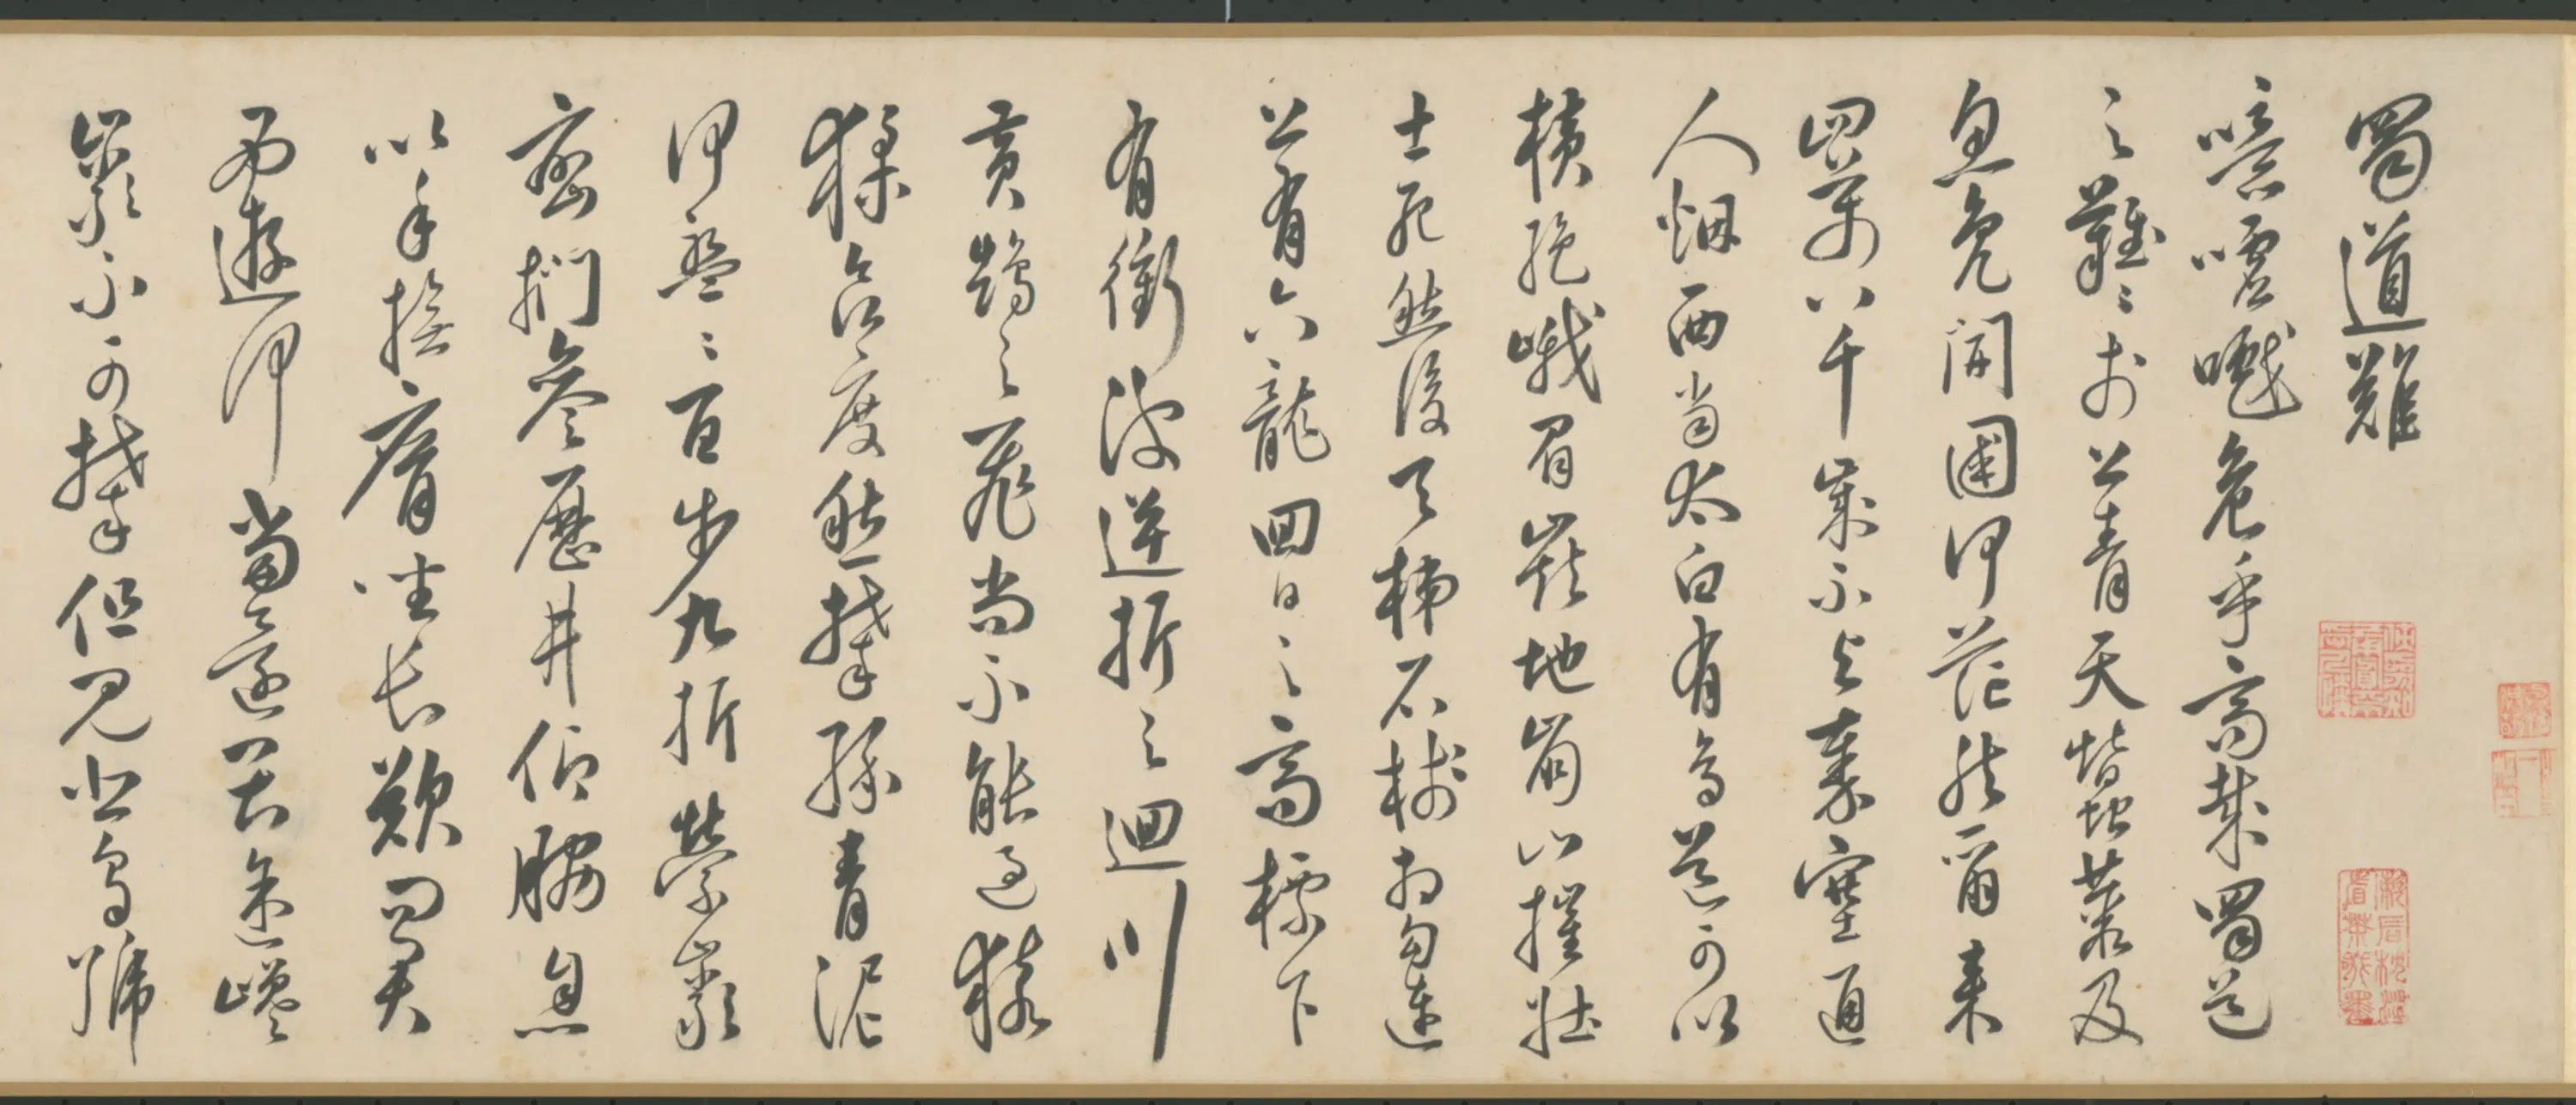 蜀道難
噫嘘嚱危乎高哉蜀道
之難〻於上青天蠶叢及
魚鳧開國何茫然爾來
四萬八千歲不與秦塞通
人烟西當太白有鳥道可以
橫絕峨眉巔地崩山摧壯
士死然後天梯石棧相勾連
上有六龍回日之高標下
有衝波逆折之迴川
黃鶴之飛尚不能過猿
猱欲度愁攀緣青泥
何盤〻百步九折縈巖
巒捫參歷井仰脇息
以手撫膺坐長歎問君
西遊何當還畏途巉
巖不可攀但見悲鳥號